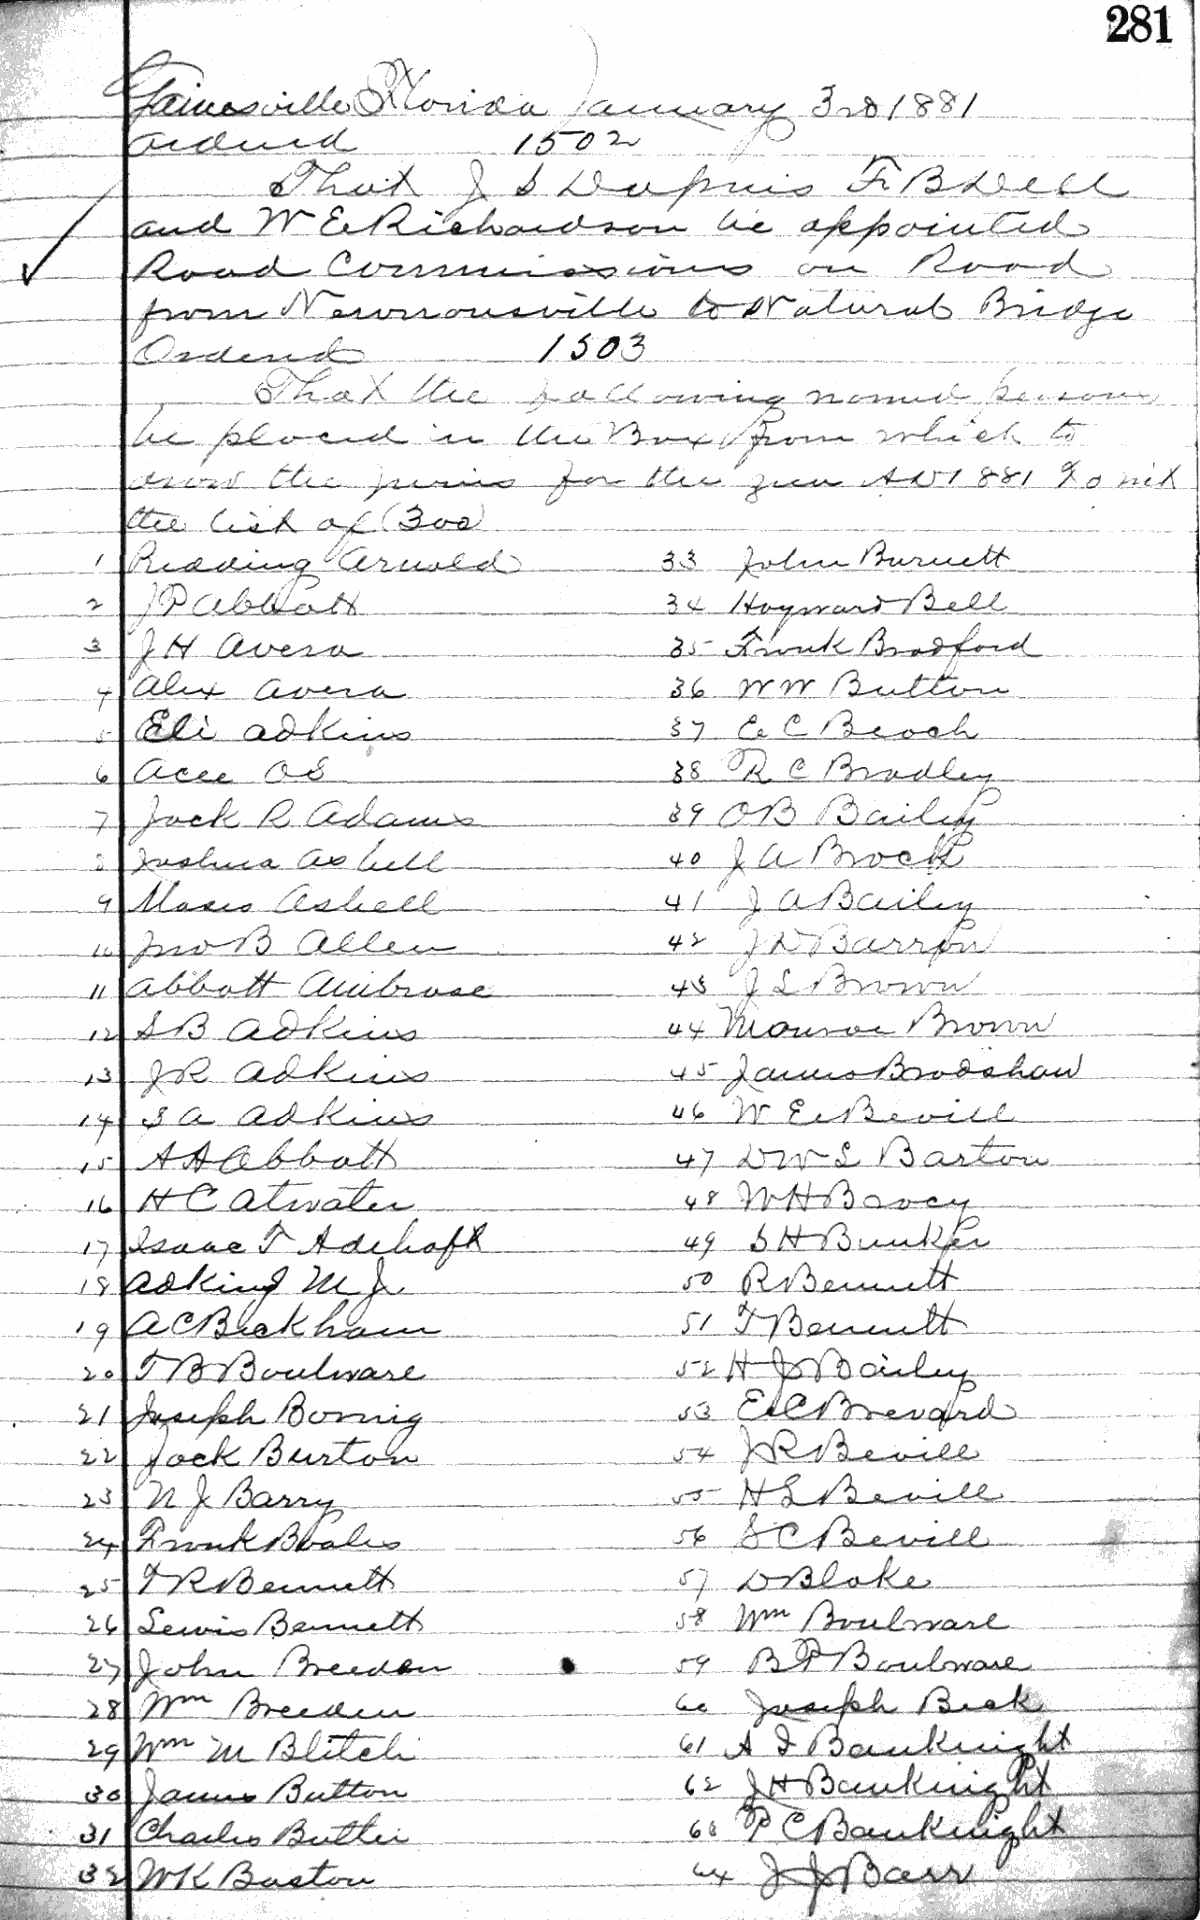 281
Gainesville Florida January 3rd 1881
Ordered 1502
That J S Dupuis F B Dell
and W E Richardson be appointed
Road Commissions on Road
from Newnansville to Natural Bridge
Ordered 1503
That the following named persons
be placed in the Box from which to
draw the juries for the year AD 1881 To wit
the list of (300)
1 Redding Arnold
2 J P Abbott
3 J H Avera
4 Alex Avera
5 Eli Adkins
6 Acee O S
7 Jack R Adams
8 Joshua Asbell
9 Moses Asbell
10 Jno B Allen
11 Abbott Ambrose
12 S B Adkins
13 J R Adkins
14 S A Adkins
15 A A Abbott
16 H C Atwater
17 Isaac T
18 Adkins M J
19 A C Beckham
20 T B Boulware
21 Joseph
22 Jack Burton
23 N J Barry
24 Frank
25 T R Bennett
26 Lewis Bennett
27 John Breeden
28 Wm Breeden
29 Wm M Blitch
30 James Button
31 Charles Butler
32 W K Baston
33 John Burnett
34 Haywards Bell
35 Frank Bradford
36 W W Button
37 E C Beach
38 R C Bradley
39 O B Bailey
40 J A Brock
41 J A Bailey
42 J D Barron
43 J L Brown
44 Monroe Brown
45 James Bradshaw
46 W E Bevill
47 D W L Barton
48 W H
49 S H Bunker
50 R Bennett
51 T Bennett
52 H J Bailey
53 E C Brevard
54 J R Bevill
55 H L Bevill
56 S C Bevill
57 D Blake
58 Wm Boulware
59 B F Boulware
60 Joseph Beck
61 A I Bauknight
62 J H Bauknight
63 P C Bauknight
64 J J Barr